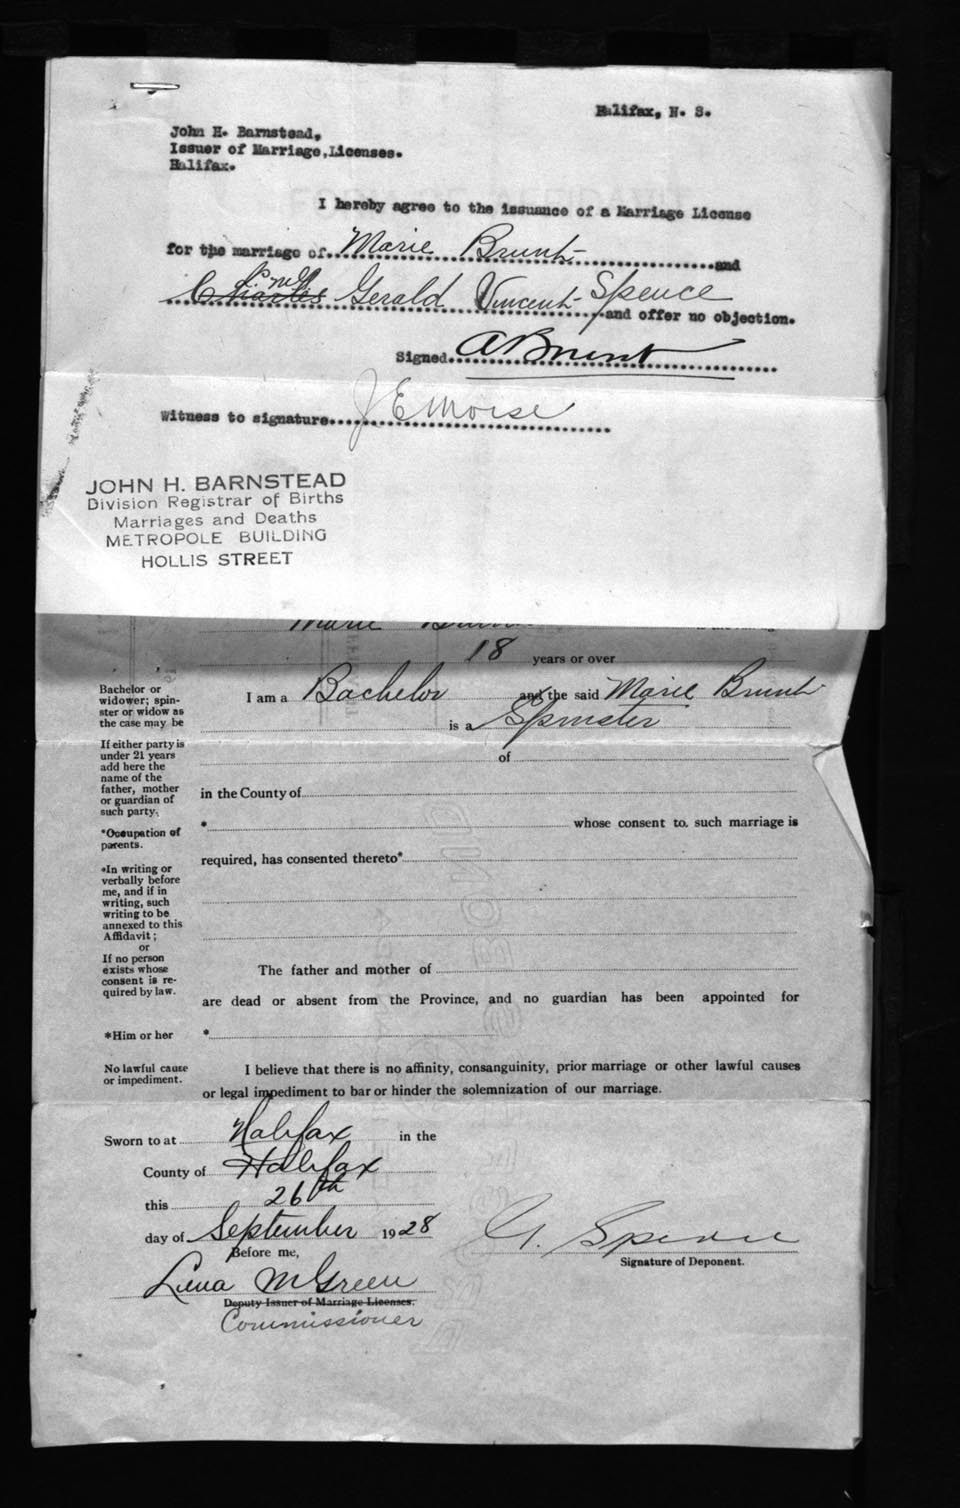 Halifax, N. S.
John H. Barnstead,
Issuer of Marriage,Licenses.
Halifax.
I hereby agree to the issuance of a Marriage License
for the marriage of Marie Brunt and
Charles Gerald Vincent Spence
and offer no objection.
Signed ABrunt
Witness to signature J E Morse
JOHN H. BARNSTEAD
Division Registrar of Births
Marriages and Deaths
METROPOLE BUILDING
HOLLIS STREET
Marie
18 years or over
Bachelor or
widower; spin-
ster or widow as
the case may be
I am a Bachelor and the said Marie Brunt
is a Spinster
If either party is
under 21 years
add here the
name of the
father, mother
or guardian of
such party.
of
in the County of
*Occupation of
parents.
* whose consent to. such marriage is
required, has consented thereto*
*In writing or
verbally before
me, and if in
writing, such
writing to be
annexed to this
Affidavit;
or
If no person
exists whose
consent is re-
quired by law.
The father and mother of
are dead or absent from the Province, and no guardian has been appointed for
*Him or her *
No lawful cause
or impediment.
I believe that there is no affinity, consanguinity, prior marriage or other lawful causes
or legal impediment to bar or hinder the solemnization of our marriage.
Sworn to at Halifax in the
County of Halifax
this 26th
day of September 1928
G. Spence
Before me,
Signature of Deponent.
Lena M Green
Deputy Issuer of Marriage Licenses.
Commissioner